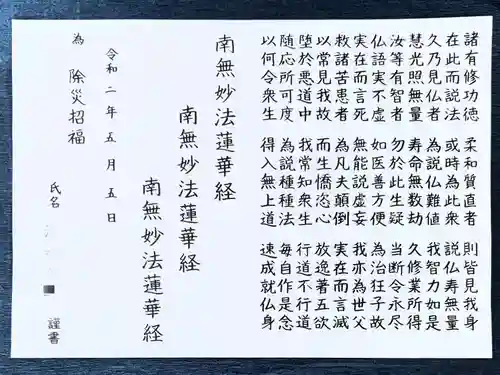 諸有修功徳 柔和質直者 則皆見我身
在此而説法 或時為此衆 説仏寿無量
久乃見仏者 為説仏難値 我智力如是
慧光照無量 寿命無数劫 久修業所得
汝等有智者 勿於此生疑 当断令永尽
仏語実不虚 如医善方便 為治狂子故
実在而言死 無能説虚妄 我亦為世父
救諸苦患者 為凡夫顛倒 実在而言滅
以常見我故 而生憍恣心 放逸著五欲
堕於悪道中 我常知衆生 行道不行道
随応所可度 為説種種法 毎自作是念
以何令衆生 得入無上道 速成就仏身
南無妙法蓮華経
南無妙法蓮華経
南無妙法蓮華経
令和二年五月五日
為 除災招福
氏名 謹書